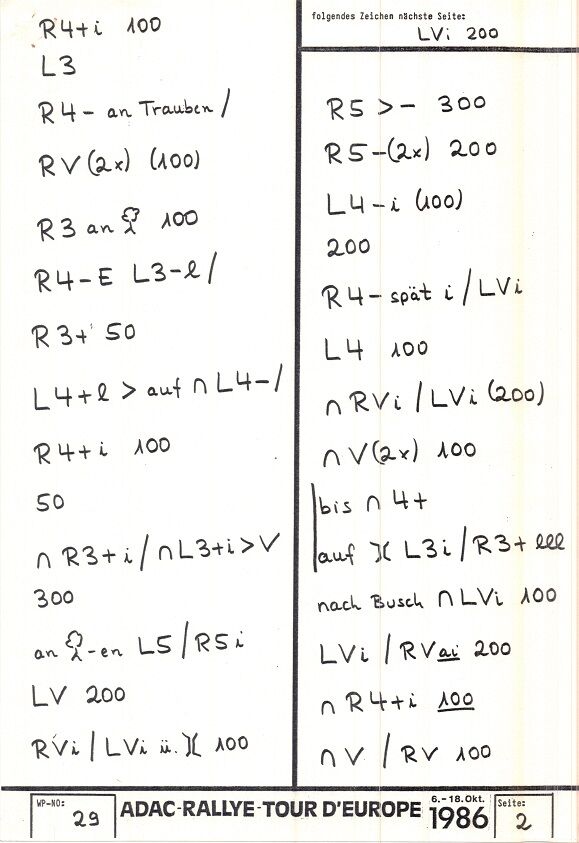 R4+i 100
L3
R4- an Trauben/
RV(2x) (100)
R3 an 100
R4-E L3-l/
R3+ 50
L4+l > auf ∩ L4-/
R4+i 100
50
∩ R3+i/∩L3+i>V
300
an -en L5/R5i
LV 200
RVi/LVi ü. )( 100
folgendes Zeichen nächste Seite:
LVi 200
R5 >- 300
R5-(2x) 200
L4-i (100)
200
R4- spät i/LVi
L4 100
∩ RVi/LVi (200)
∩ V(2x) 100
bis ∩ 4+
auf )( L3i/R3+ lll
nach Busch ∩LVi 100
LVi / RVai 200
∩ R4+i 100
∩ V / RV 100
WP-NO: 29
ADAC-RALLYE-TOUR D'EUROPE
6.-18.Okt. 1986
Seite: 2